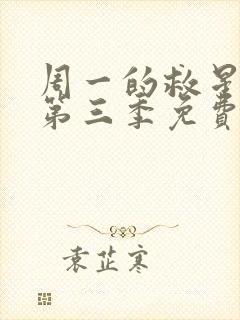 周一的救星
第三季免費
袁芷寒